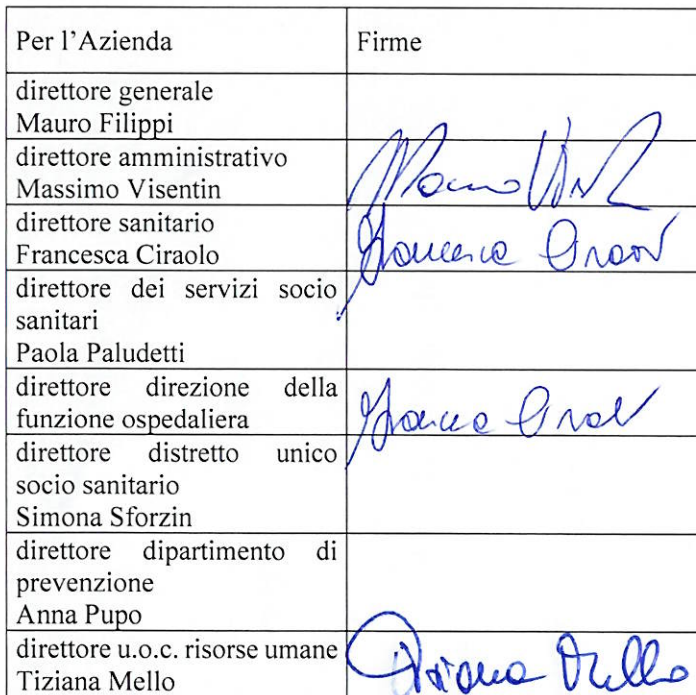 Per l'Azienda Firme
direttore generale
Mauro Filippi
direttore amministrativo
Massimo Visentin
direttore sanitario
Francesca Ciraolo
direttore dei servizi socio
sanitari
Paola Paludetti
direttore direzione della
funzione ospedaliera
direttore distretto unico
socio sanitario
Simona Sforzin
direttore dipartimento di
prevenzione
Anna Pupo
direttore u.o.c. risorse umane
Tiziana Mello Tiziana Mello